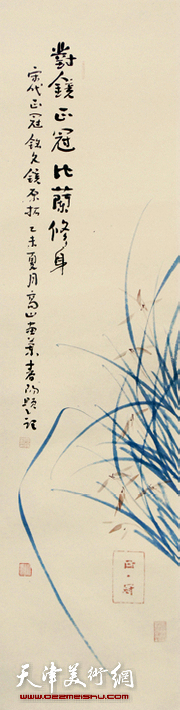 對鏡正冠比蘭修身
宋代正冠銘文鏡原拓乙未夏月高山画葉春陽題記
正冠
天津美術網
www.022meishu.com